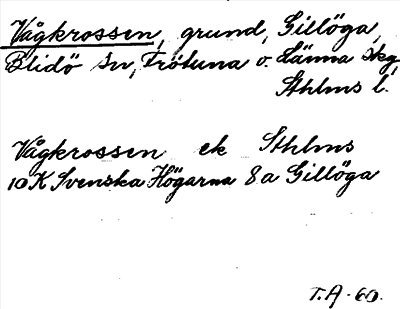 Vågkrossen, grund, Gillöga,
Blidö sn, Frötuna o. Länna skg,
Sthlms l.
Vågkrossen ek Sthlms
10 K Svenska Högarna 8a Gillöga
T.A-60.